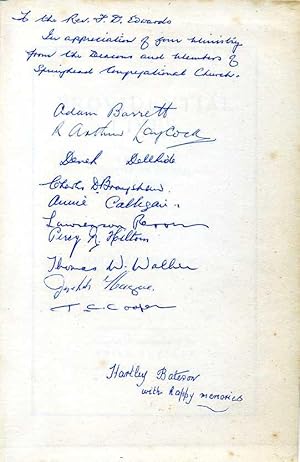 To the Rev. F. D. Edwards
In appreciation of your Ministry
from the Deacons and Members of
Springhead Congregational Church.
Adam Barrett
R Arthur Laycock
Derek
Charles D. Brayshaw.
Annie Callegari.
Percy N. Hilton
Thomas W. Walker
Joseph
T C Cooper
Hartley Bateson
with happy memories